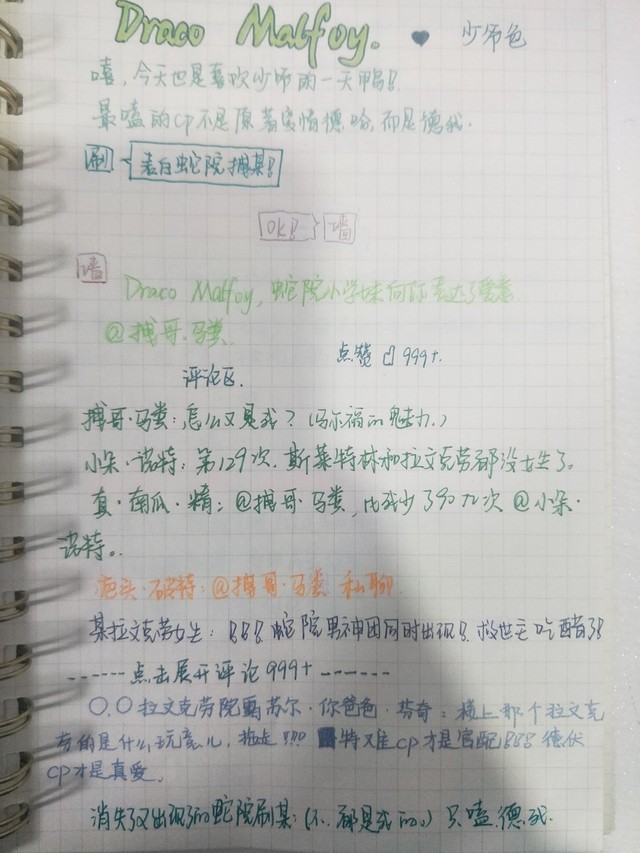 Draco Malfoy. 少爷色
嘻,今天也是喜欢少师的一天鸭!
最嗑的cp不是原著实情德哈,而是德我.
刷 表白蛇院搏某!
OK! 墙
墙
Draco Malfoy, 蛇院小学妹向你表达了爱意
@搏哥·马粪.
点赞 999+.
评论区.
搏哥·马粪:怎么又是我?(马尔福的魅力.)
小朵·诺特:第129次.斯莱特林和拉文克劳都没女生了。
真·南瓜·精:@搏哥·马粪,比我少了90九次@小朵·
诺特。.
疤头·破特:@搏哥·马粪 私聊.
某拉文克劳女生:!!!蛇院男神团同时出现!救世主吃醋了!
------点击展开评论999+------
○.○拉文克劳院 苏尔·你爸爸·芬奇:楼上那个拉文克
劳的是什么玩意儿,拖走!!! cp才是官配!!!德伏
cp才是真爱.
消失了又出现了的蛇院刷某:(不.都是我的。)只嗑德我.